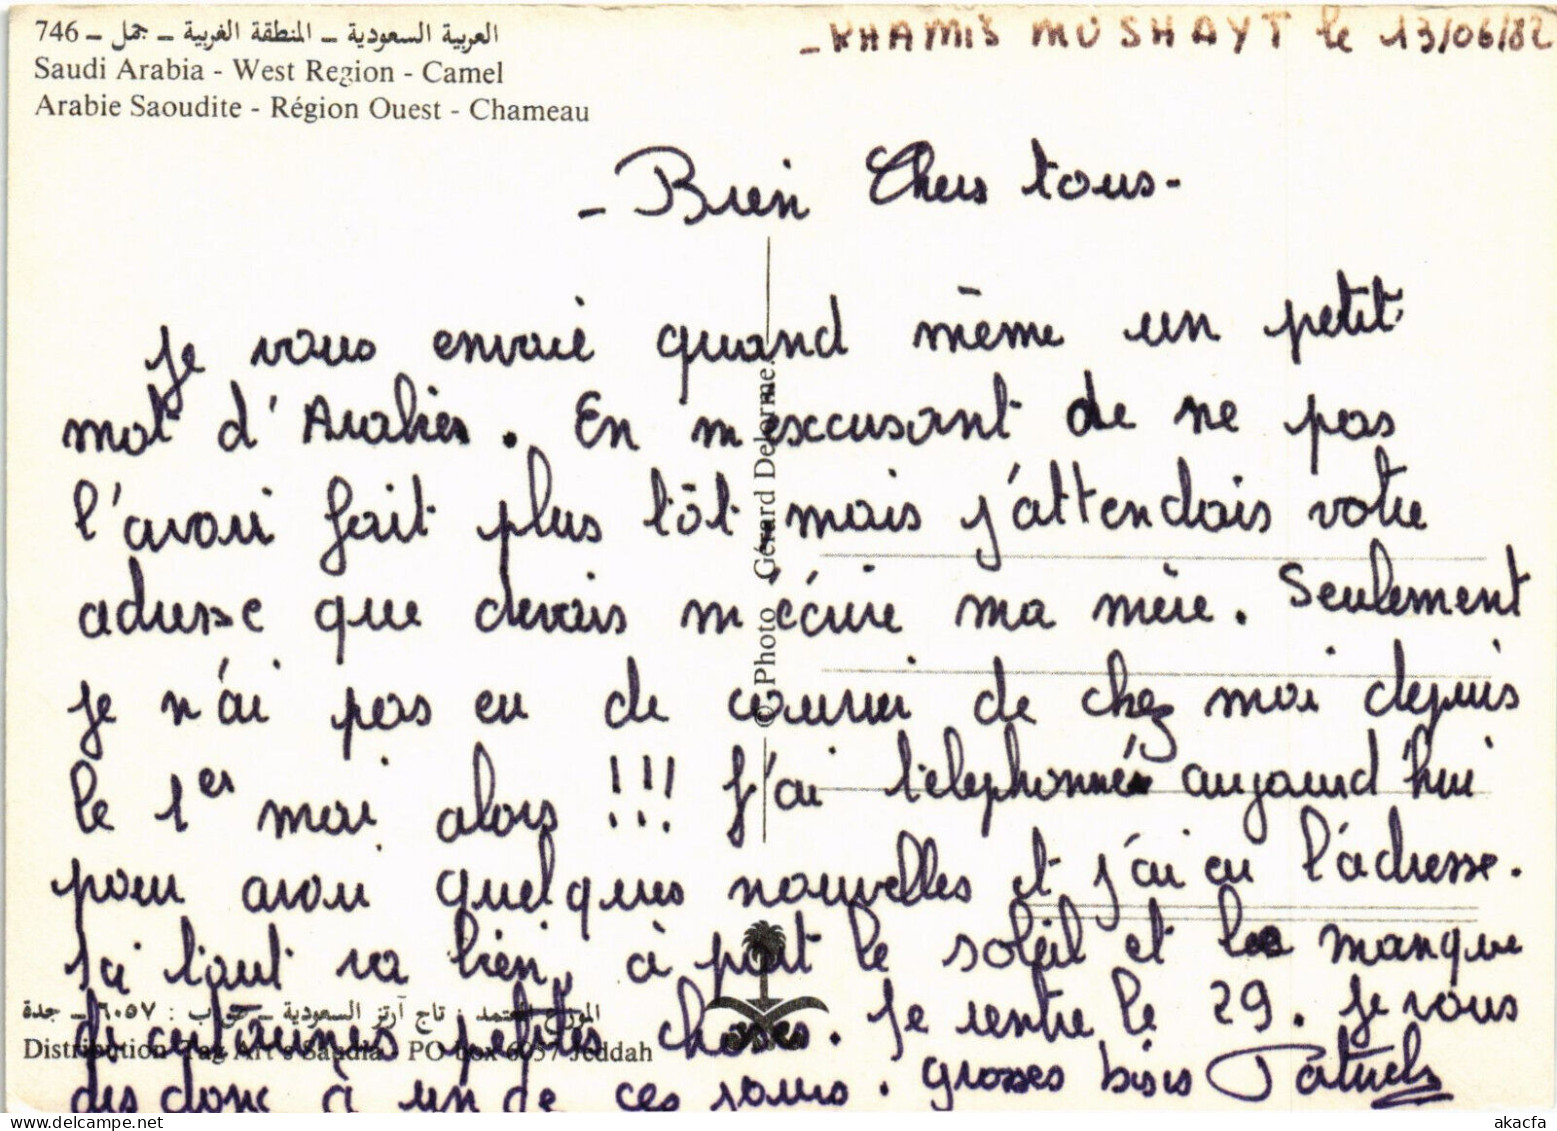 746 – العربية السعودية – المنطقة الغربية – جمل
Saudi Arabia - West Region - Camel
Arabie Saoudite - Région Ouest - Chameau
- KHAMIS MUSHAYT le 13/06/82
- Bien Chers tous -
Je vous envoie quand même un petit
mot d'Arabie. En m'excusant de ne pas
l'avoir fait plus tôt mais j'attendais votre
adresse que devais m'écrire ma mère. Seulement
je n'ai pas eu de courrier de chez moi depuis
le 1er mai alors !!! J'ai téléphonné aujourd'hui
pour avoir quelques nouvelles et j'ai eu l'adresse.
Ici tout va bien, à part le soleil et le manque
de certaines petites choses. Je rentre le 29. Je vous
dis donc à un de ces jours. grosses bises Patrick
© Photo Gérard Delorme.
الموزع المعتمد : تاج آرتز السعودية – ص ب : ٦٠٥٧ – جدة
Distribution Tag Art's Saudia - PO box 6057 Jeddah
akacfa.hipstamp.com
akacfa